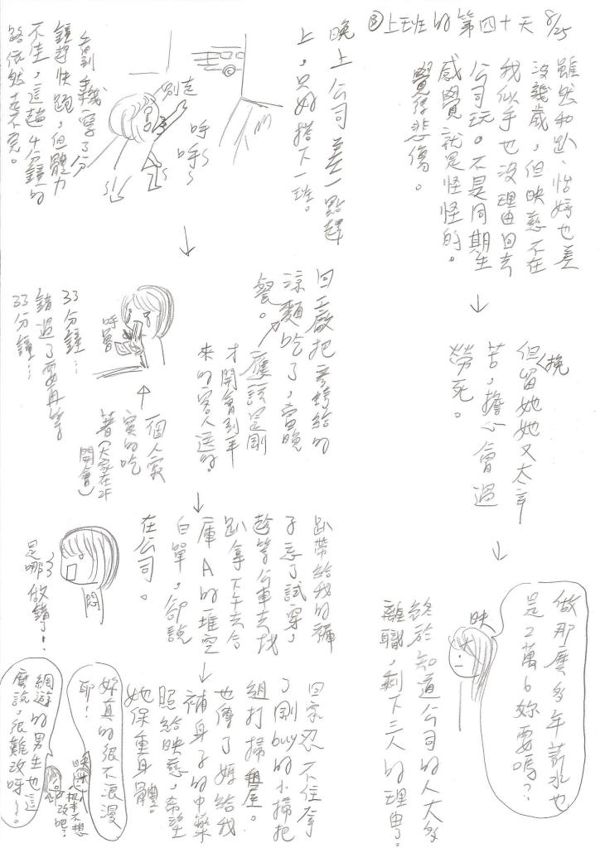 ③上班的第四十天 8/25
雖然和趴、怡婷也差
沒幾歲，但映慈不在
我似乎也沒理由回去
公司玩。不是同期生
感覺就是怪怪的。
覺得悲傷。
但留她她又太辛
(挽
苦，擔心會過
勞死。
做那麼多年薪水也
是2萬6妳要嗎？
映
終於知道公司的人大多
離職，剩下三人的理由了。
晚上公司差一點趕
上，只好搭下一班。
別走
呼~
呼~
上剩一截穿了分
鐘就快跑，但體力
不佳，這趟4分鐘的
路依然走不完。
回工廠把
涼麵吃了，當晚
餐。
應該是剛
才開會到年
來的客人送的
一個人寂
寞的吃
著(大家在2F
開會)
呼
33分鐘…
錯過了要再等
33分鐘…
趴帶給我的褲
子忘了試穿，
趁等公車去找
趴拿下午去倉
庫A的堆空
白單，卻說
在公司。
悶
是哪做錯了！
回家忍不住拿
了剛buy的小掃把
組打掃租屋。
也傳了媽給我
補身子的中藥
照給映慈，希望
她保重身體。
妳真的很不浪漫
耶！
映
根本不想
改吧！
網遊的男生也這
麼說，很難改呀~。